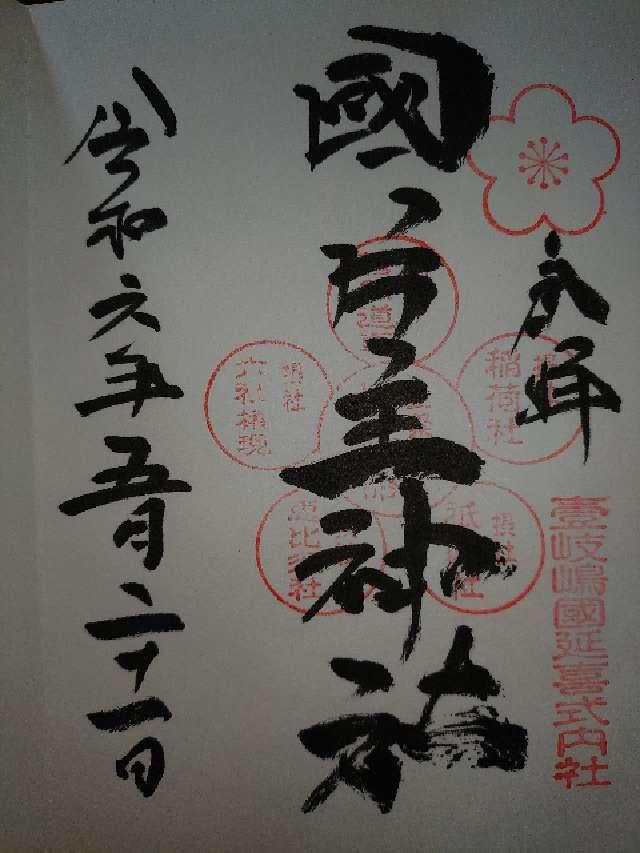 奉拝
壹岐嶋國延喜式内社
國片主神社
摂社
稲荷社
摂社
六社権現
摂社
恵比須社
令和六年五月二十一日